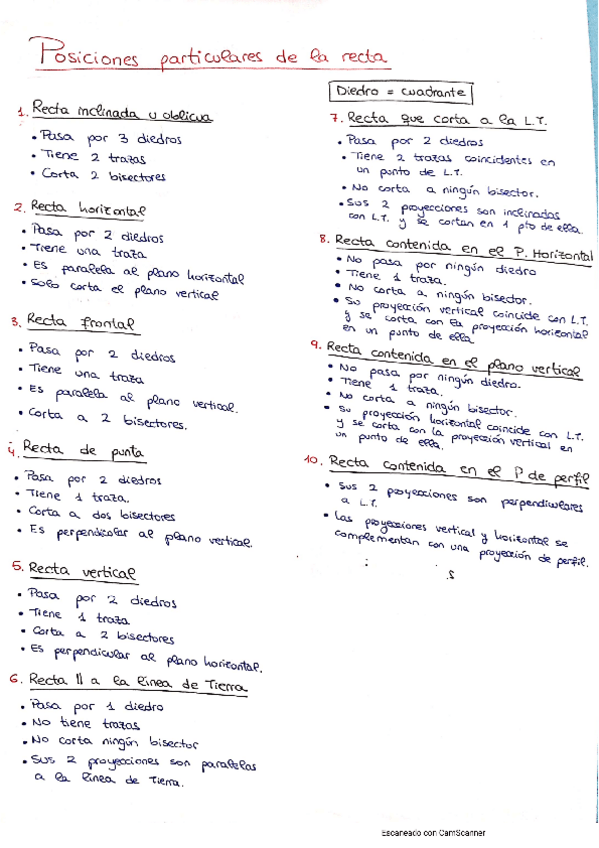 Posiciones particulares de la recta
1. Recta inclinada u oblicua
• Pasa por 3 diedros
• Tiene 2 trazas
• Corta 2 bisectores
2. Recta horizontal
• Pasa por 2 diedros
• Tiene una traza
• Es paralela al plano horizontal
• Solo corta el plano vertical
3. Recta frontal
• Pasa por 2 diedros
• Tiene una traza
• Es paralela al plano vertical.
• Corta a 2 bisectores.
4. Recta de punta
• Pasa por 2 diedros
• Tiene 1 traza.
• Corta a dos bisectores
• Es perpendicolar al plano vertical.
5. Recta vertical
• Pasa por 2 diedros
• Tiene 1 traza
• Corta a 2 bisectores
• Es perpendicular al plano horizontal.
6. Recta || a la línea de Tierra
• Pasa por 1 diedro
• No tiene trazas
• No corta ningún bisector
• Sus 2 proyecciones son paralelas
a la línea de Tierra.
Diedro = cuadrante
7. Recta que corta a la L.T.
• Pasa por 2 diedros
• Tiene 2 trazas coincidentes en
un punto de L.T.
• No corta a ningún bisector.
• Sus 2 proyecciones son inclinadas
con L.T. y se cortan en 1 pto de ella.
8. Recta contenida en el P. Horizontal
• No pasa por ningún diedro
• Tiene 1 traza.
• No corta a ningún bisector.
• Su proyección vertical coincide con L.T.
y se corta con la proyección horizontal
en un punto de ella
9. Recta contenida en el plano vertical
• No pasa por ningún diedro.
• Tiene 1 traza.
• No corta a ningún bisector.
• Su proyección horizontal coincide con L.T.
y se corta con la proyección vertical en
un punto de ella.
10. Recta contenida en el P de perfil
• Sus 2 proyecciones son perpendiculares
a L.T.
• Las proyecciones vertical y horizontal se
complementan con una proyección de perfil.
Escaneado con CamScanner